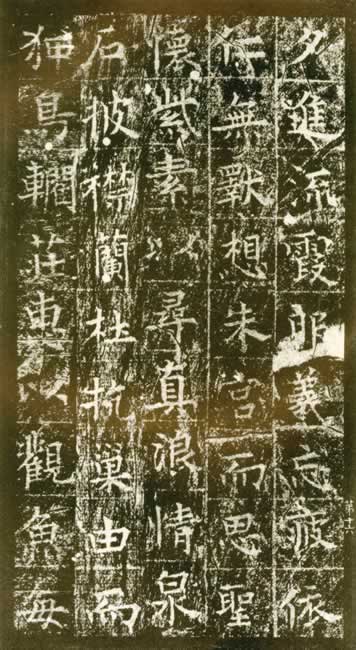 夕進流霞即義忘疲依
仁無厭想朱宮而思聖
懷紫素以尋真浪情泉
石披襟蘭杜抗巢由而
狎鳥轥莊惠以觀魚每